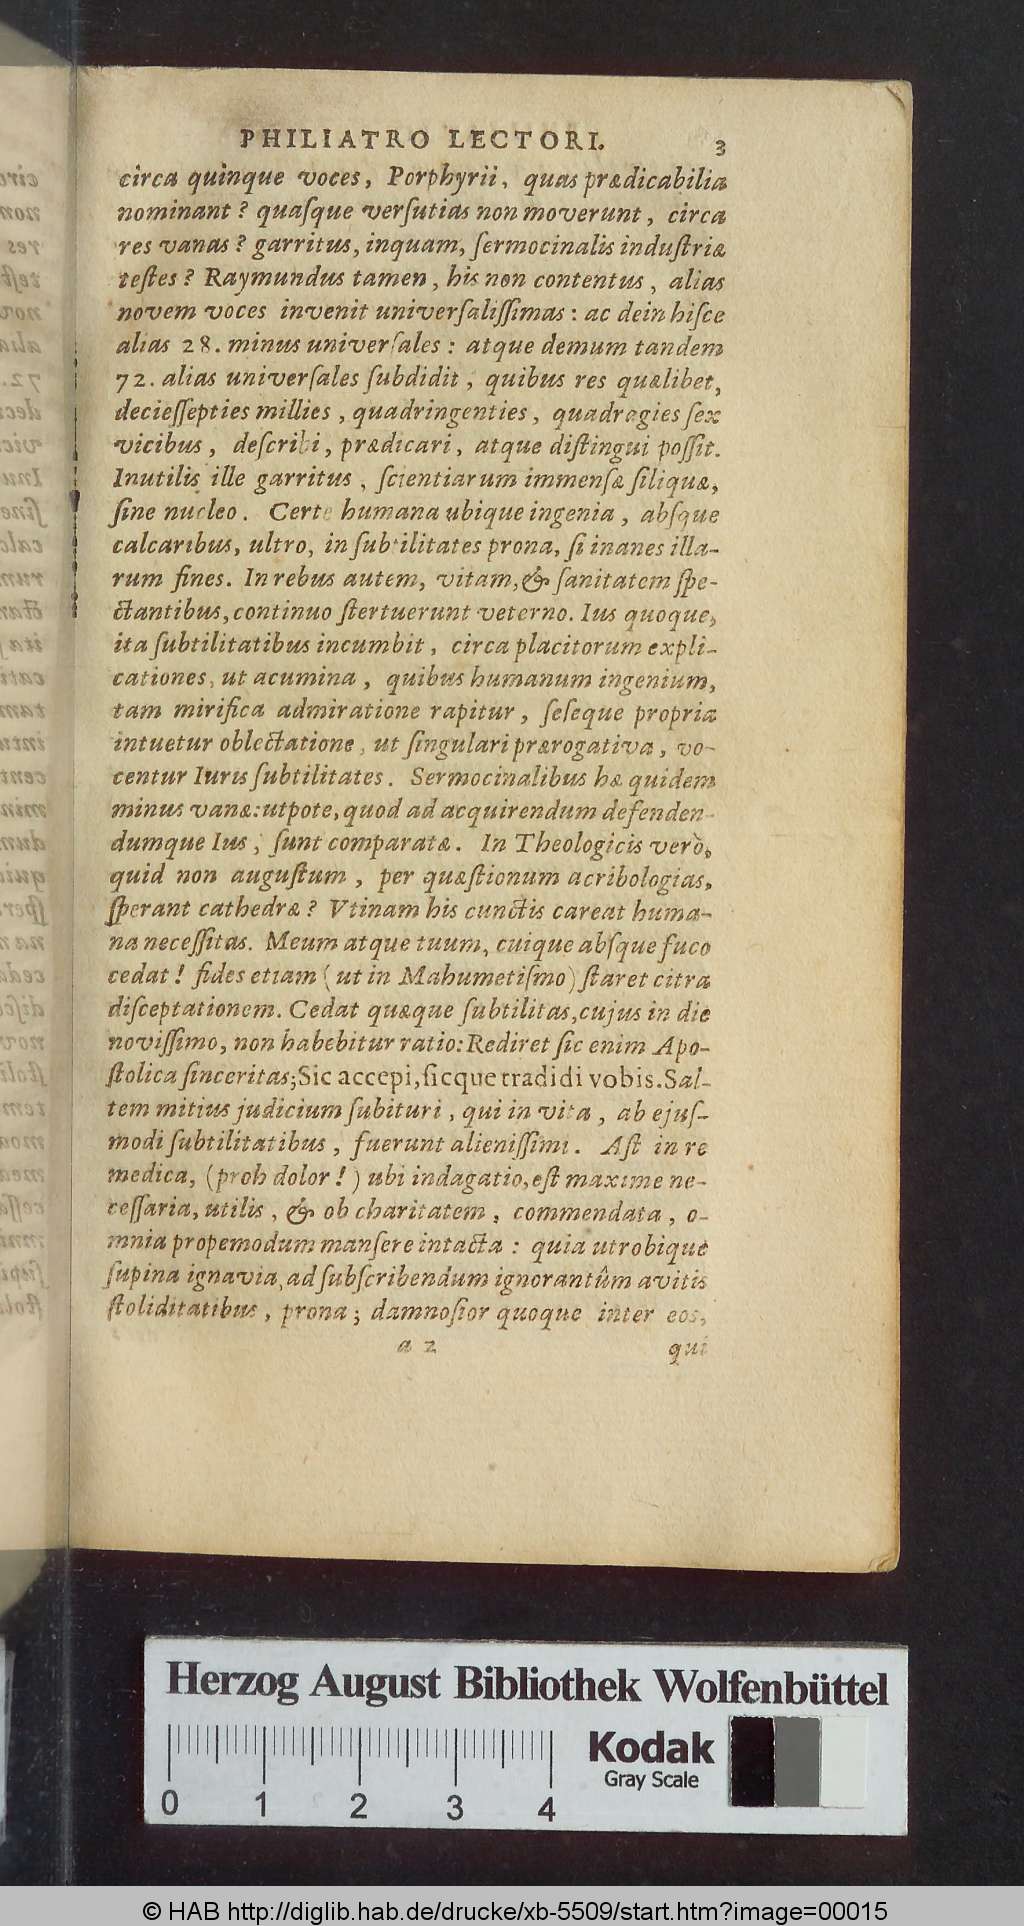 PHILIATRO LECTORI. 3
circa quinque voces, Porphyrii, quas prædicabilia
nominant? quaſque verſutias non moverunt, circa
res vanas? garritus, inquam, ſermocinalis induſtriæ
teſtes? Raymundus tamen, his non contentus, alias
novem voces invenit univerſaliſſimas: ac dein hiſce
alias 28. minus univerſales: atque demum tandem
72. alias univerſales ſubdidit, quibus res quælibet,
decieſſepties millies, quadringenties, quadragies ſex
vicibus, deſcribi, prædicari, atque diſtingui poſſit.
Inutilis ille garritus, ſcientiarum immenſæ ſiliquæ,
ſine nucleo. Certe humana ubique ingenia, abſque
calcaribus, ultro, in ſubtilitates prona, ſi inanes illa-
rum fines. In rebus autem, vitam, & ſanitatem ſpe-
ctantibus, continuo ſtertuerunt veterno. Ius quoque,
ita ſubtilitatibus incumbit, circa placitorum expli-
cationes, ut acumina, quibus humanum ingenium,
tam mirifica admiratione rapitur, ſeſeque propria
intuetur oblectatione, ut ſingulari prærogativa, vo-
centur Iuris ſubtilitates. Sermocinalibus hæ quidem
minus vanæ: utpote, quod ad acquirendum defenden-
dumque Ius, ſunt comparatæ. In Theologicis verò,
quid non auguſtum, per quæſtionum acribologias,
ſperant cathedræ? Vtinam his cunctis careat huma-
na neceſſitas. Meum atque tuum, cuique abſque fuco
cedat! fides etiam (ut in Mahumetiſmo) ſtaret citra
diſceptationem. Cedat quæque ſubtilitas, cujus in die
noviſſimo, non habebitur ratio: Rediret ſic enim Apo-
ſtolica ſinceritas; Sic accepi, ſicque tradidi vobis. Sal-
tem mitius judicium ſubituri, qui in vita, ab ejuſ-
modi ſubtilitatibus, fuerunt alieniſſimi. Aſt in re
medica, (proh dolor!) ubi indagatio, eſt maxime ne-
ceſſaria, utilis, & ob charitatem, commendata, o-
mnia propemodum manſere intacta: quia utrobique
ſupina ignavia, ad ſubſcribendum ignorantûm avitis
ſtoliditatibus, prona; damnoſior quoque inter eos,
a 2 qui
Herzog August Bibliothek Wolfenbüttel
Kodak
Gray Scale
0 1 2 3 4
© HAB http://diglib.hab.de/drucke/xb-5509/start.htm?image=00015